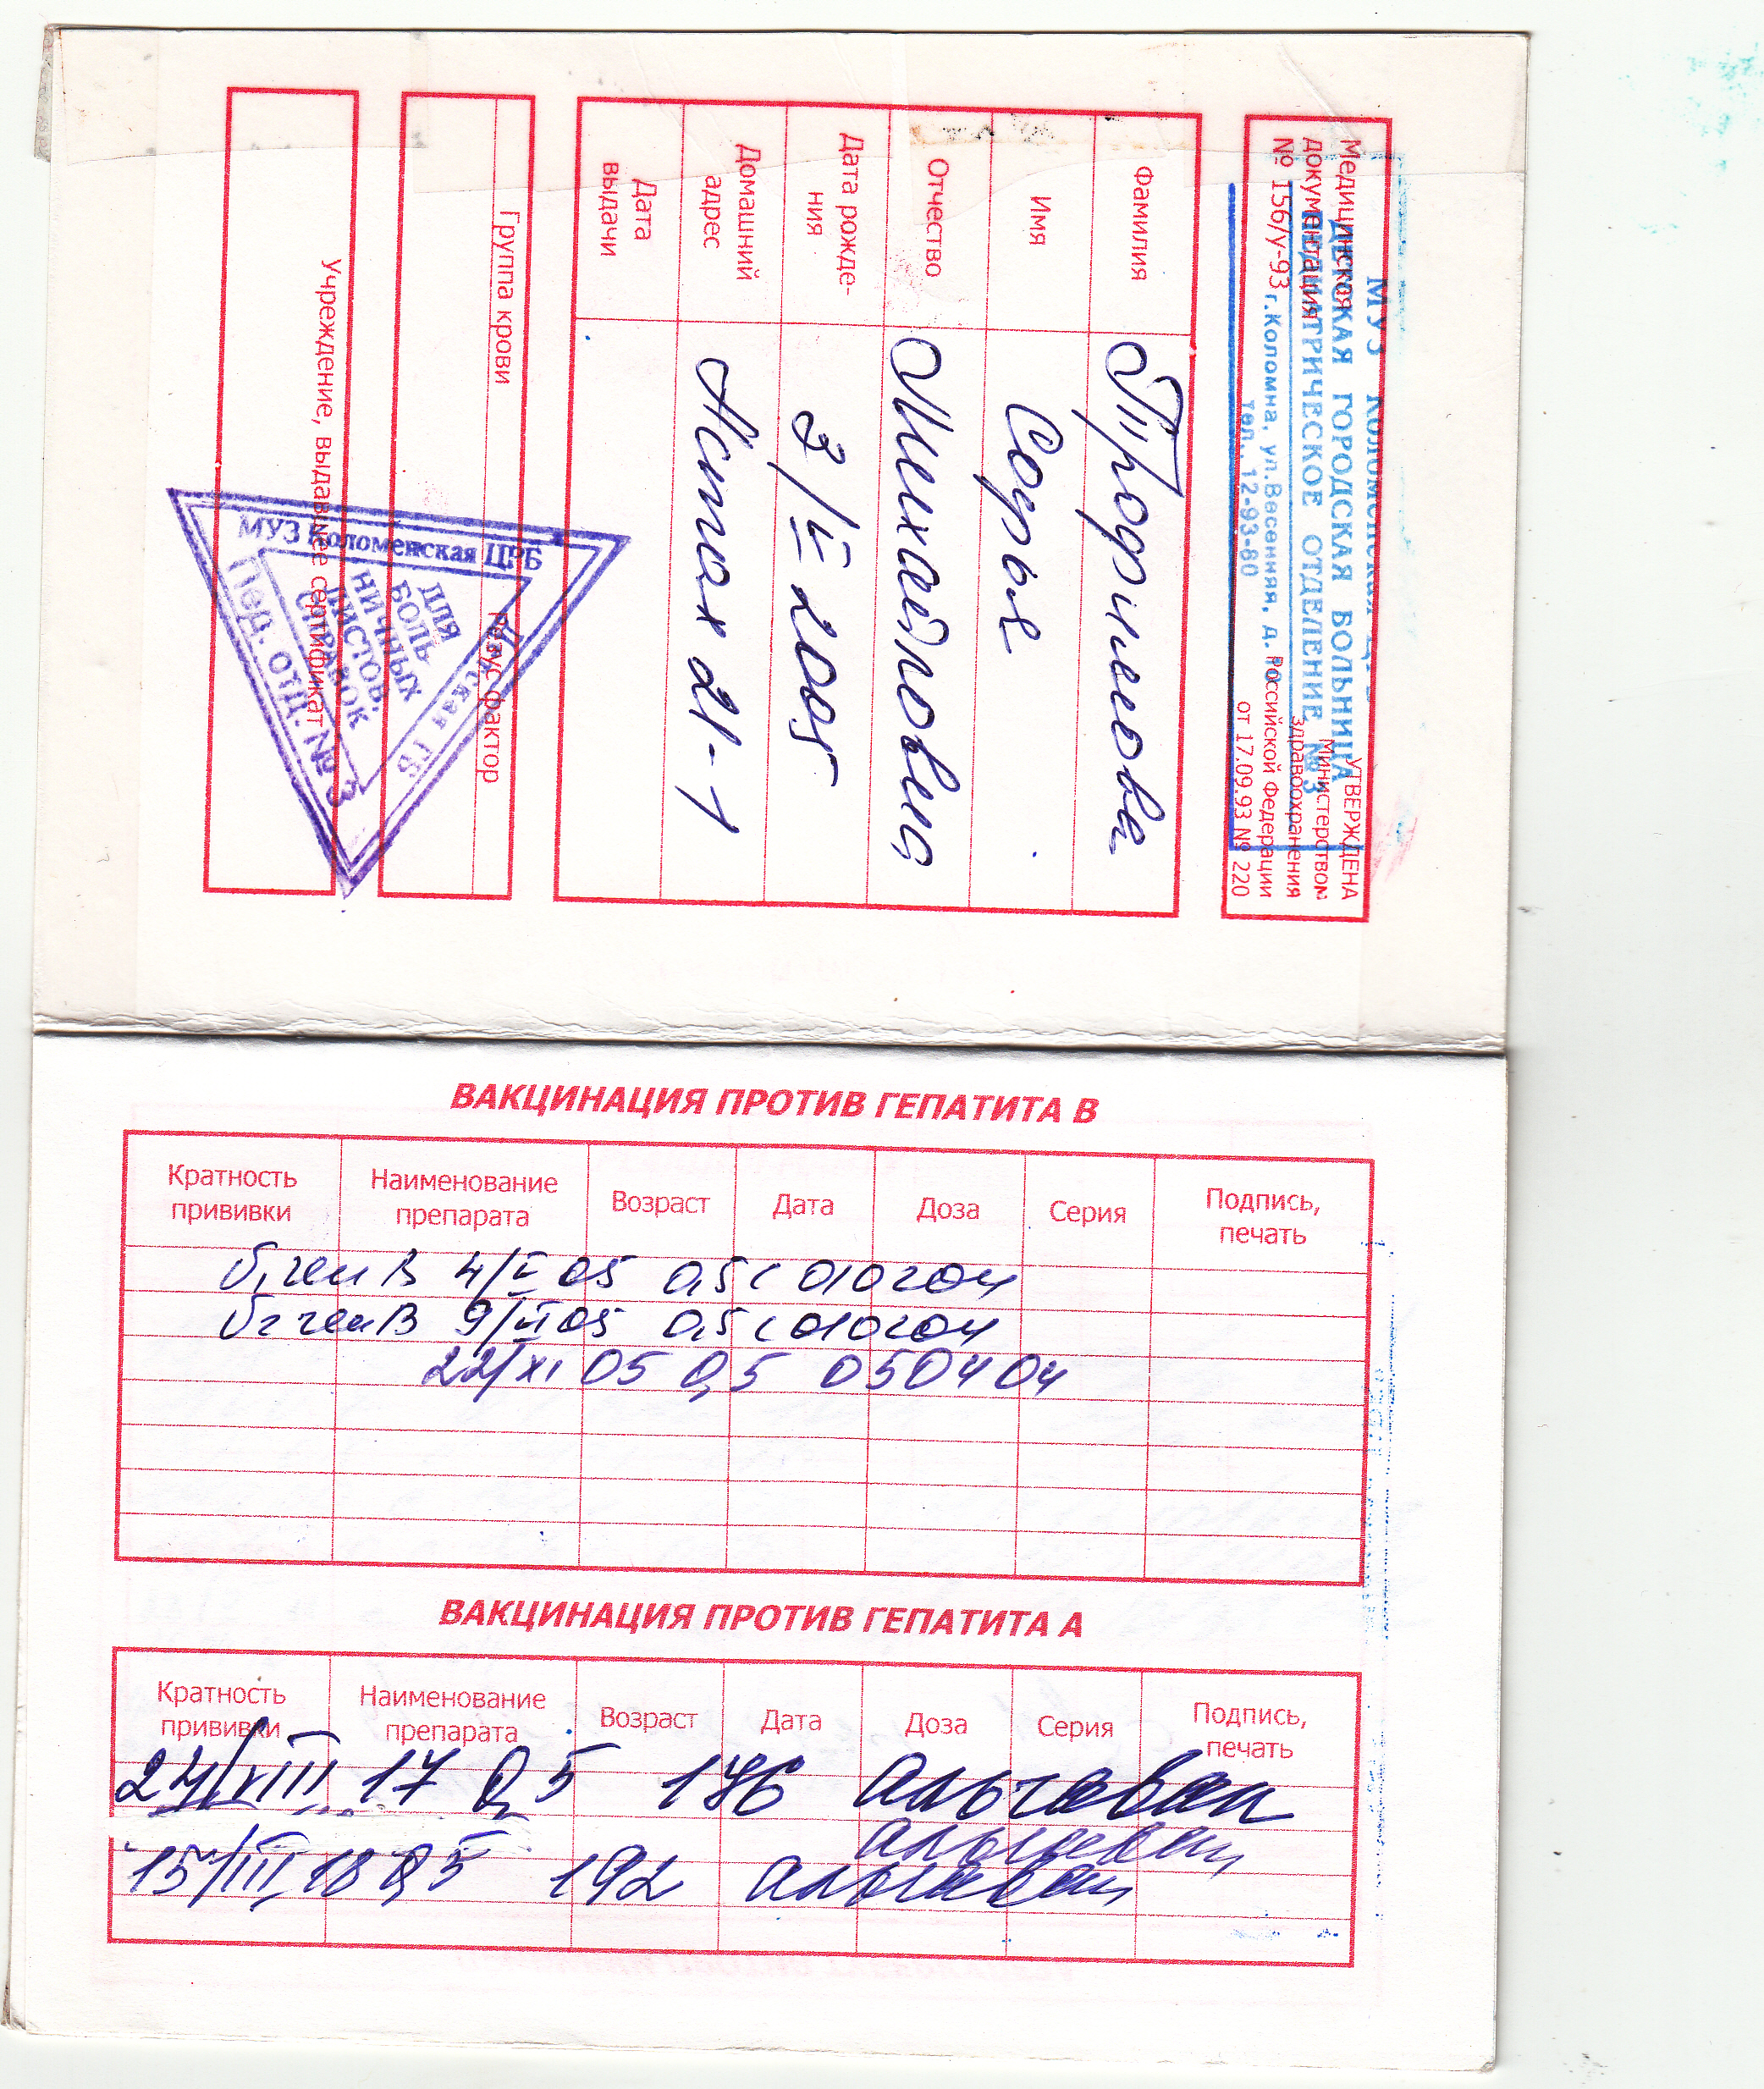 Медицинская
документация
№ 156/у-93
УТВЕРЖДЕНА
Министерством
здравоохранения
Российской Федерации
от 17.09.93 № 220
МУЗ Коломенская ЦРБ
ДЕТСКАЯ ГОРОДСКАЯ БОЛЬНИЦА
ПЕДИАТРИЧЕСКОЕ ОТДЕЛЕНИЕ №3
г.Коломна, ул.Весенняя, д.
тел.. 12-93-80
Фамилия Трофимова
Имя Софья
Отчество
Дата рожде-
ния 3/V 2005
Домашний
адрес 21-1
Дата
выдачи
Группа крови
Резус-фактор
Учреждение, выдавшее сертификат
МУЗ Коломенская ЦРБ
Детская ГБ
Пед. отд. № 3
ДЛЯ
БОЛЬ-
НИЧНЫХ
ЛИСТОВ,
СПРАВОК
ВАКЦИНАЦИЯ ПРОТИВ ГЕПАТИТА В
Кратность прививки Наименование препарата Возраст Дата Доза Серия Подпись, печать
4/V 05 0,5 010204
9/VI 05 0,5 010204
22/XI 05 0,5 050404
ВАКЦИНАЦИЯ ПРОТИВ ГЕПАТИТА А
Кратность прививки Наименование препарата Возраст Дата Доза Серия Подпись, печать
24/VIII 17 0,5 176 альгавак
альгавак
15/III 18 0,5 192 альгавак